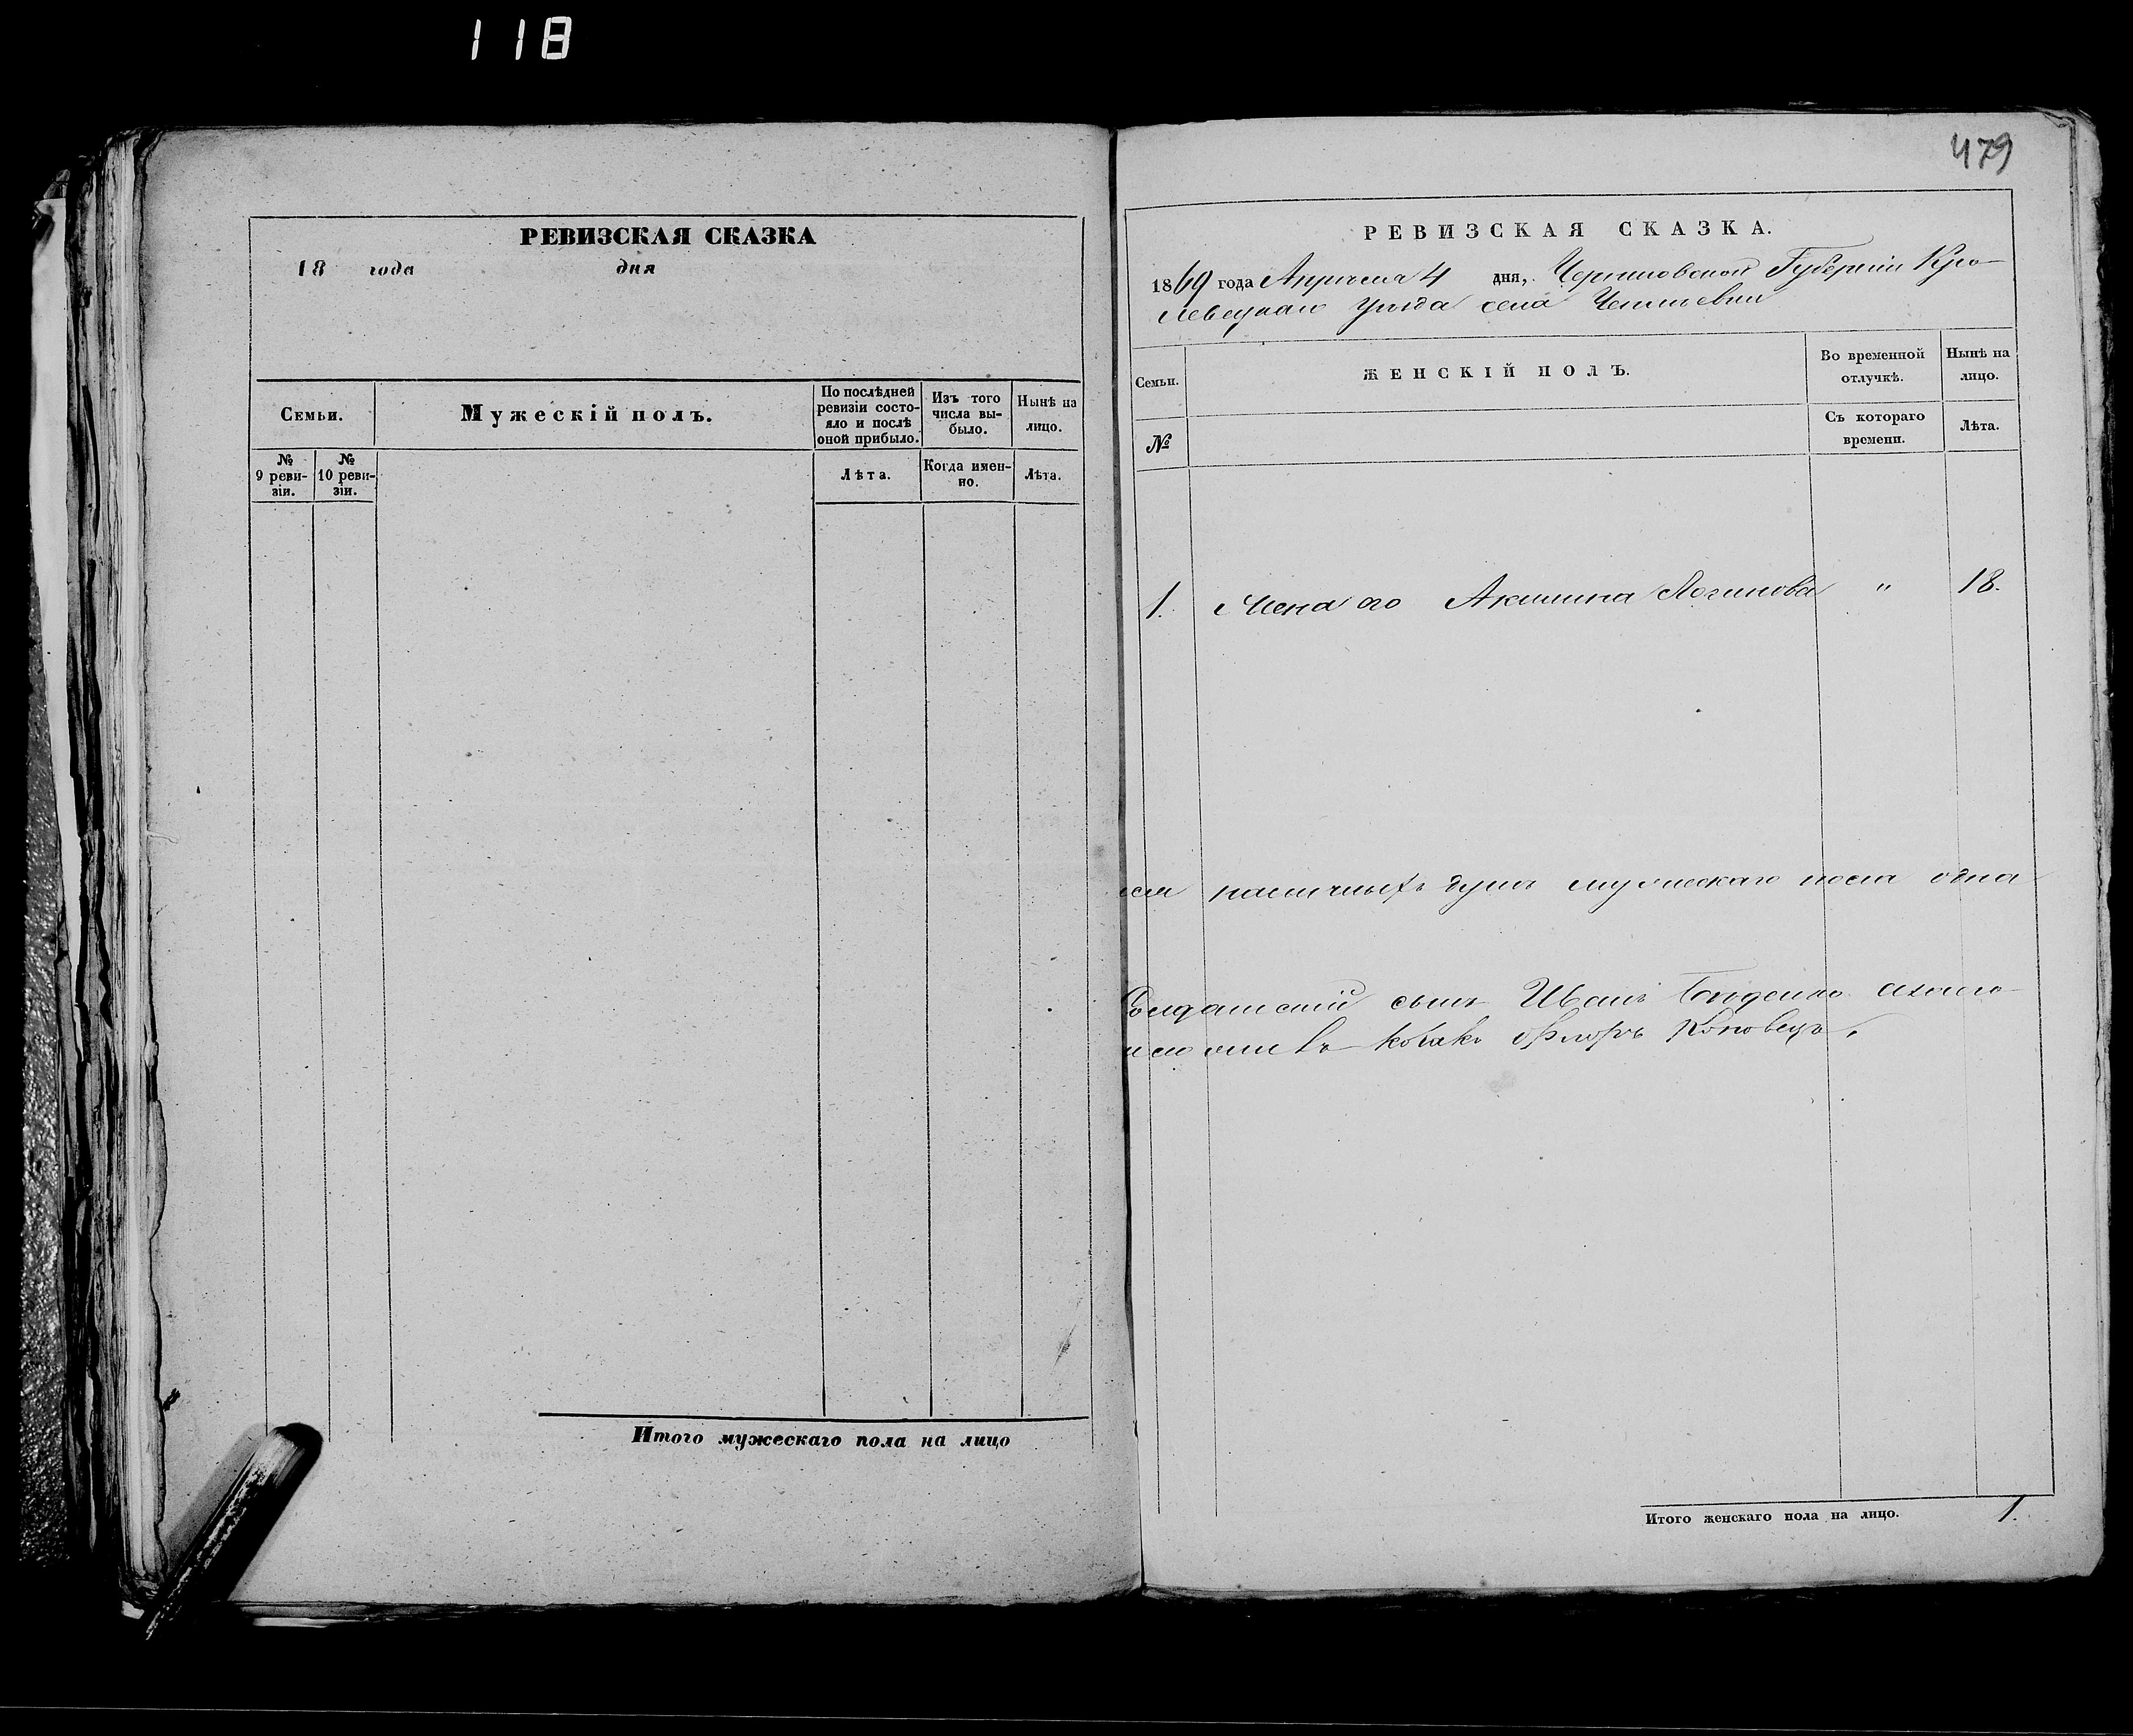 118
РЕВИЗСКАЯ СКАЗКА
18 года дня
Семьи.
Мужескій полъ.
По послѣдней ревизіи состо-
яло и послѣ
оной прибыло.
Изъ того
числа вы-
было.
Нынѣ на
лицо.
№
9 реви-
зіи.
№
10 реви-
зіи.
Лѣта.
Когда имен-
но.
Лѣта.
Итого мужескаго пола на лицо
479
РЕВИЗСКАЯ СКАЗКА.
1869 года Апрѣля 4 дня, Черниговской Губерніи Кро-
левецкаго уѣзда села
Семьи.
ЖЕНСКІЙ ПОЛЪ.
Во временной
отлучкѣ.
Нынѣ на
лицо.
№
Съ котораго
времени.
Лѣта.
1. Жена его Акилина Логинова " 18.
наличныхъ душъ мужескаго пола одна
Солдатскій сынъ Иванъ а по его
козакъ
Итого женскаго пола на лицо. 1.